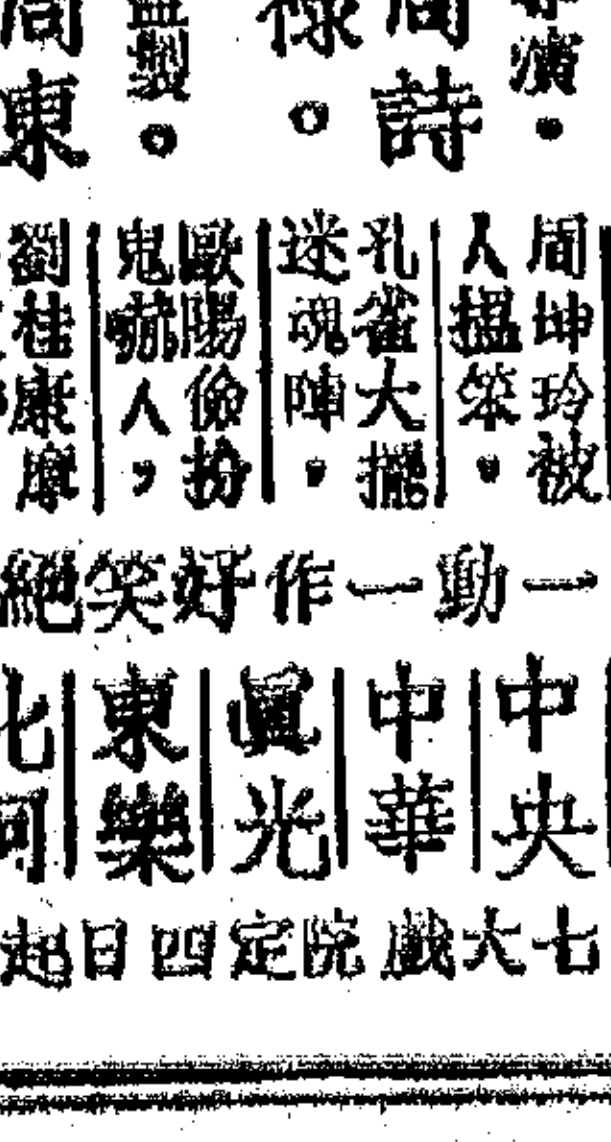 演。
周詩
祿。
監製。
周東
周坤玲被
人搵笨。
孔雀大擺
迷魂陣。
歐陽儉扮
鬼嚇人，
劉桂康摩
一動一作好笑絕
中央
中華
眞光
東樂
七大戲院定四日起